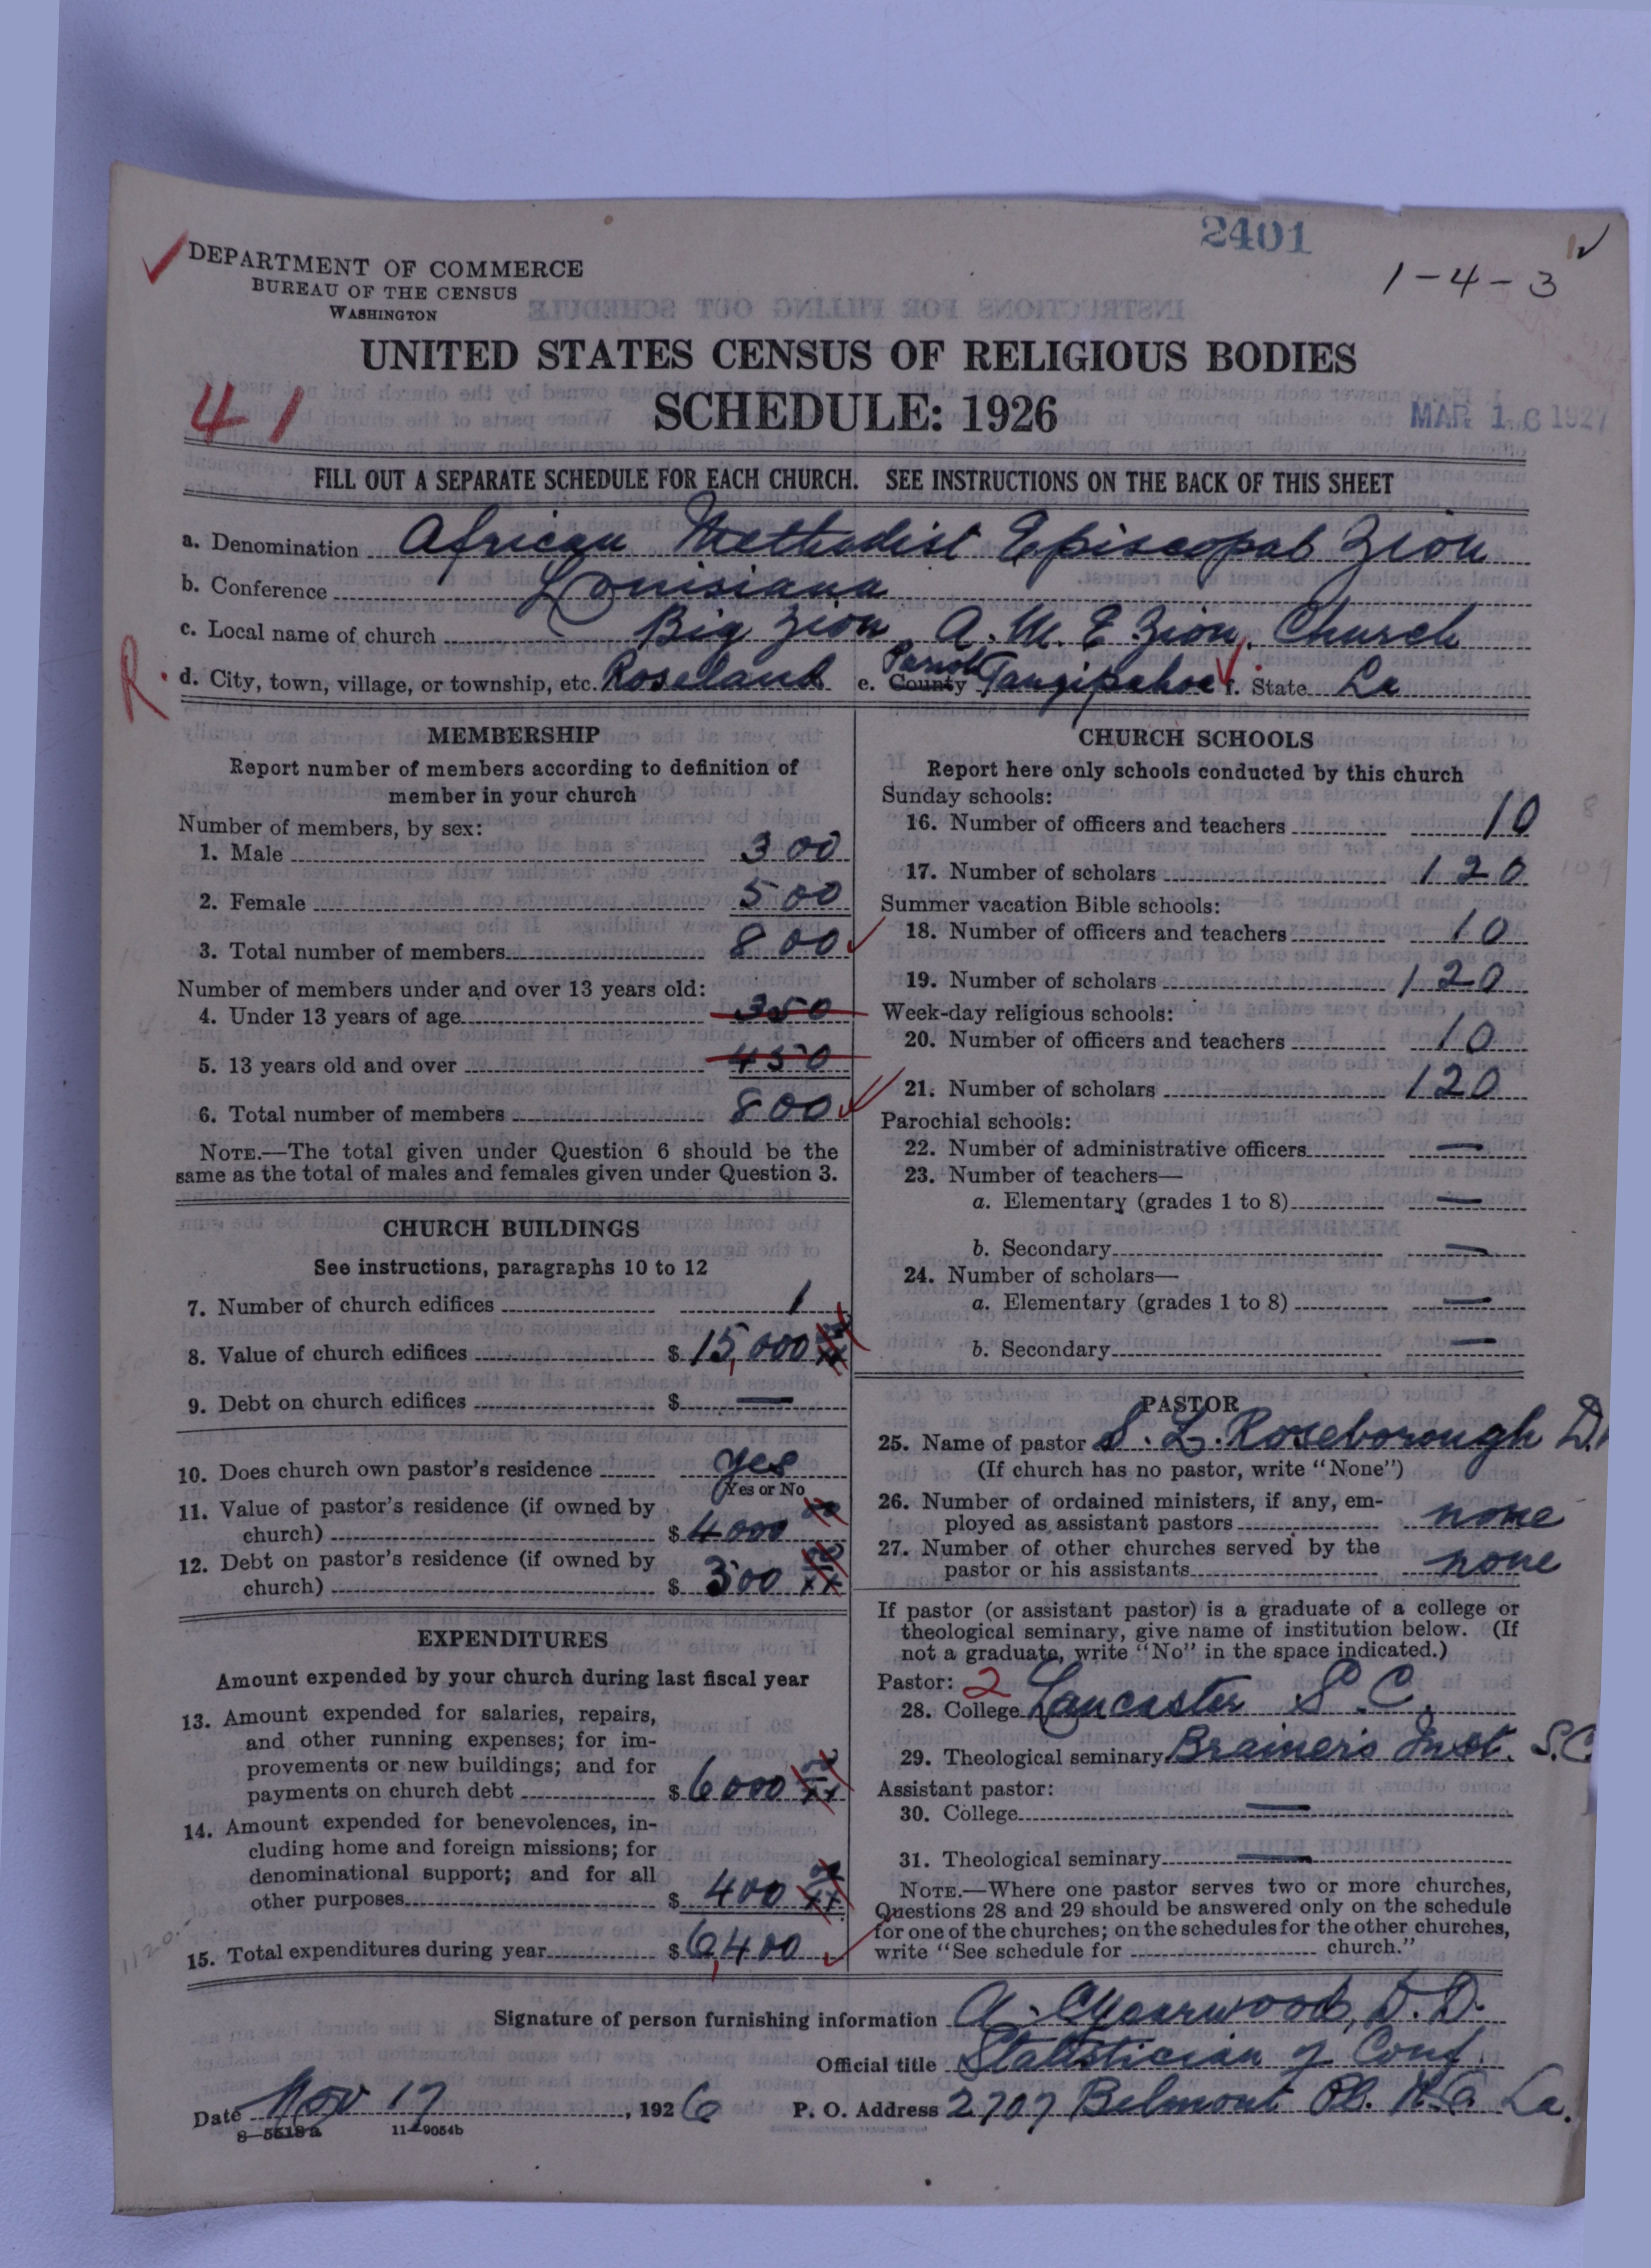 2401
DEPARTMENT OF COMMERCE
BUREAU OF THE CENSUS
WASHINGTON
1-4-3
UNITED STATES CENSUS OF RELIGIOUS BODIES
SCHEDULE: 1926
41
MAR 16 1927
FILL OUT A SEPARATE SCHEDULE FOR EACH CHURCH. SEE INSTRUCTIONS ON THE BACK OF THIS SHEET
a. Denomination African Methodist Episcopal Zion
b. Conference Louisiana
c. Local name of church Big Zion, A. M. E Zion, Church
R. d. City, town, village, or township, etc. Roseland e. County Parish Tangipahoa f. State La
MEMBERSHIP
Report number of members according to definition of
member in your church
Number of members, by sex:
1. Male 300
2. Female 500
3. Total number of members 800
Number of members under and over 13 years old:
4. Under 13 years of age 350
5. 13 years old and over 450
6. Total number of members 800
NOTE.—The total given under Question 6 should be the
same as the total of males and females given under Question 3.
CHURCH BUILDINGS
See instructions, paragraphs 10 to 12
7. Number of church edifices 1
8. Value of church edifices $ 15,000 00/xx
9. Debt on church edifices $ —
10. Does church own pastor's residence yes
Yes or No
11. Value of pastor's residence (if owned by
church) $ 4000 00
12. Debt on pastor's residence (if owned by
church) $ 300 00/xx
EXPENDITURES
Amount expended by your church during last fiscal year
13. Amount expended for salaries, repairs,
and other running expenses; for im-
provements or new buildings; and for
payments on church debt $ 6000 00/xx
14. Amount expended for benevolences, in-
cluding home and foreign missions; for
denominational support; and for all
other purposes $ 400 00/xx
15. Total expenditures during year $ 6,400
CHURCH SCHOOLS
Report here only schools conducted by this church
Sunday schools:
16. Number of officers and teachers 10
17. Number of scholars 120
Summer vacation Bible schools:
18. Number of officers and teachers 10
19. Number of scholars 120
Week-day religious schools:
20. Number of officers and teachers 10
21. Number of scholars 120
Parochial schools:
22. Number of administrative officers —
23. Number of teachers—
a. Elementary (grades 1 to 8) —
b. Secondary —
24. Number of scholars—
a. Elementary (grades 1 to 8) —
b. Secondary —
PASTOR
25. Name of pastor S. L. Roseborough
(If church has no pastor, write "None")
26. Number of ordained ministers, if any, em-
ployed as assistant pastors none
27. Number of other churches served by the
pastor or his assistants none
If pastor (or assistant pastor) is a graduate of a college or
theological seminary, give name of institution below. (If
not a graduate, write "No" in the space indicated.)
Pastor: 2
28. College Lancaster S. C.
29. Theological seminary Brainer's Inst. S.C
Assistant pastor:
30. College —
31. Theological seminary —
NOTE.—Where one pastor serves two or more churches,
Questions 28 and 29 should be answered only on the schedule
for one of the churches; on the schedules for the other churches,
write "See schedule for church."
Signature of person furnishing information A. Yearwood, D. D.
Official title Statistician of Conf.
Date Nov 17, 1926 P. O. Address 2707 Belmont Pl. N. O. La.
8-5518a 11-9054b